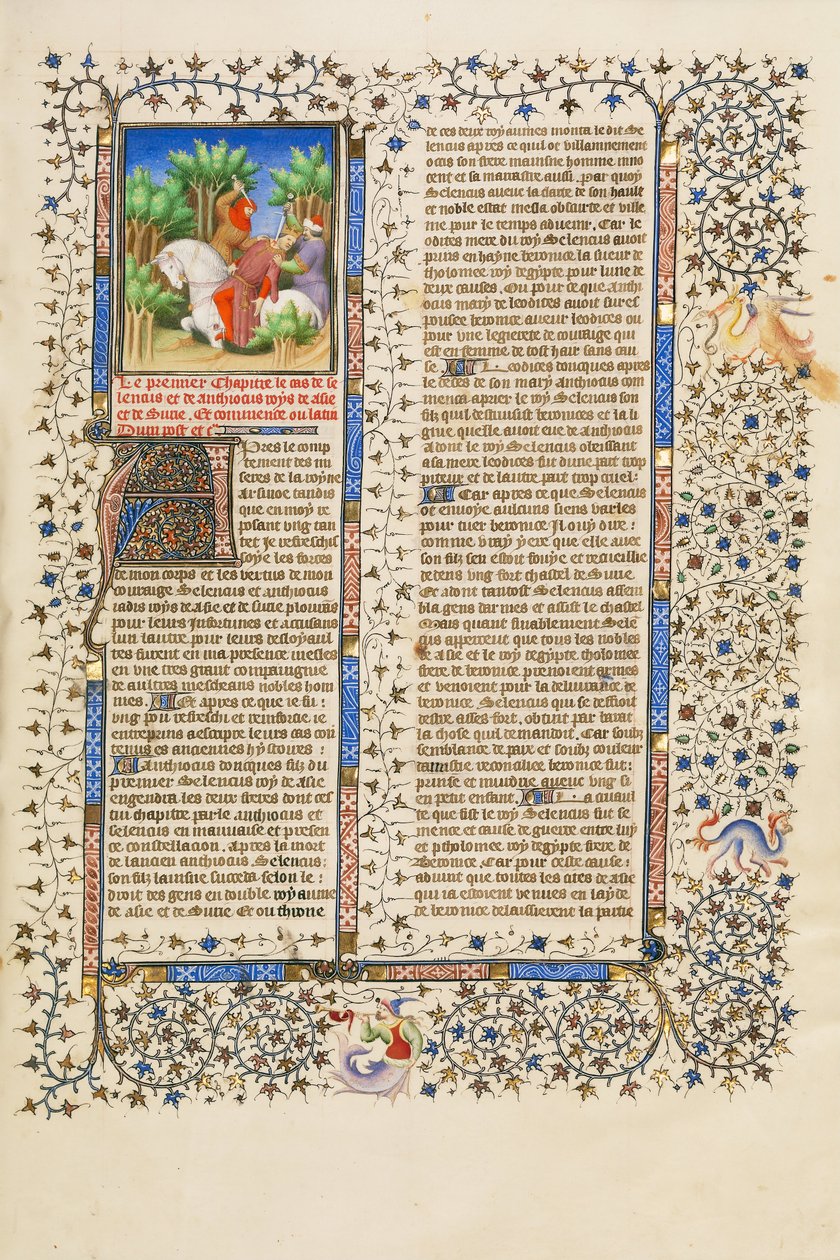 Le premier Chapitre le cas de se
leucus et de anthiocus roys de asie
et de Surie. Et commence ou latin
Dum post et cͣ
Apres le comp
tement des mi
seres de la royne
arsinoe tandis
que en moy re
posant ung tan
tet Je refreschis
soye les forces
de mon corps et les vertus de mon
couraige Seleucus et anthiocus
iadis roys de asie et de surie plourãs
pour leurs infortunes et accusans
lun lautre pour leurs desloyaul
tes furent en ma presence mesles
en une tres grant compaignie
de aultres mescheans nobles hom
mes. Et apres ce que ie fu :
ung pou refreschi et renforcie ie
entreprins a escripre leurs cas con
tenus es anciennes hystoires :
Anthiocus doncques filz du
premier Seleucus roy de asie
engendra les deux freres dont cest
tui chapitre parle anthiocus et
seleucus en mauuaise et peruer
se constellacion. Apres la mort
de lancien anthiocus Seleucus :
son filz laisne succeda selon le :
droit des gens en double royaume
de asie et de Surie Et ou throne
de ces deux royaumes monta le dit Se
leucus apres ce quil ot villainnement
occis son frere mainsne homme inno
cent et sa marastre aussi. par quoy
Seleucus aueuc la clarte de son hault
et noble estat mesla obscurte et ville
nie pour le temps aduenir. Car le
odites mere du roy Seleucus auoit
prins en hayne beronice la sueur de
tholomee roy degypte pour lune de
deux causes. Ou pour ce que anthi
ocus mary de leodites auoit sures
pousee beronice aueuc leodices ou
pour une legierete de couraige qui
est en femme de tost hair sans cau
se. Leodices doncques apres
le deces de son mary anthiocus com
menca a prier le roy Seleucus son
filz quil destruisist beronices et la li
gnie quelle auoit eue de anthiocus
adont le roy Seleucus obeissant
a sa mere leodices fut dune part trop
piteux et de lautre part trop cruel :
Car apres ce que Seleucus
ot enuoye aulcuns siens varles
pour tuer beronice Il ouy dire :
comme vray yere que elle auec
son filz sen estoit fouye et recueillie
dedens ung fort chastel de Surie
Et adont tantost Seleucus assem
bla gens darmes et assist le chastel
Mais quant finablement Seleu
cus apperceut que tous les nobles
de asie et le roy degypte tholomee
frere de beronice prenoient armes
et venoient pour la deliurance de
beronice. Seleucus qui se deffioit
destre asses fort. obtint par barat
la chose quil demandoit. Car soubz
semblance de paix et soubz couleur
damistie reconsiliee beronice fut :
prinse et murdrie aueuc ung si
en petit enfant. La cruaul
te que fist le roy Seleucus fut se
mence et cause de guerre entre luy
et ptholomee roy degypte frere de
Beronice. Car pour ceste cause :
aduint que toutes les cites de asie
qui ia estoient venues en layde
de beronice delaissierent la partie